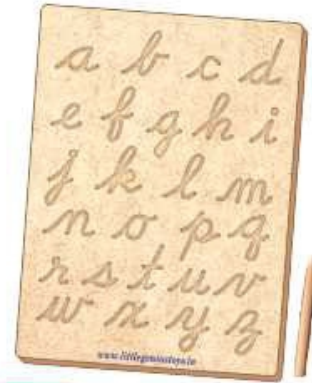 a b c d
e f g h i
j k l m
n o p q
r s t u v
w x y z
www.littlegeniustoys.in